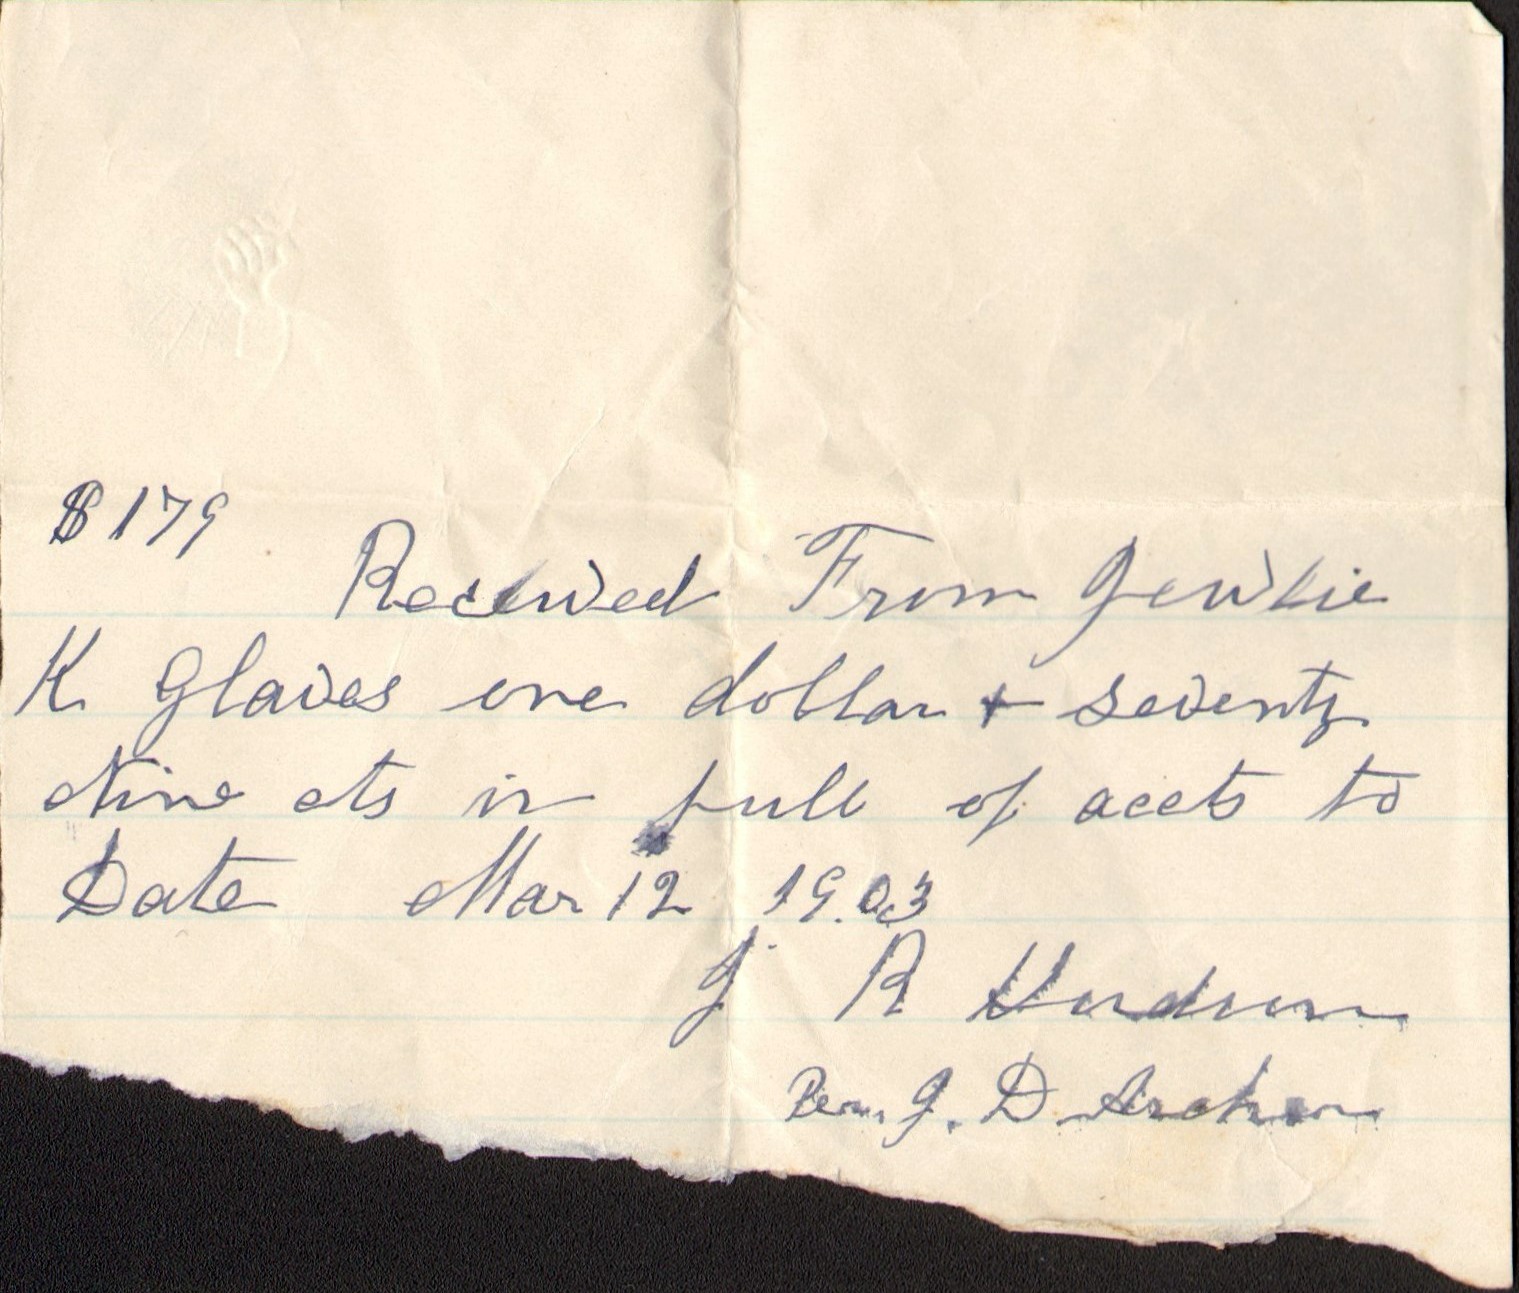 $179
Received From
K Glaves one dollar + seventy
Nine cts in full of accts to
Date Mar 12 19.03
J R Hudson
Per. J. D. Archer